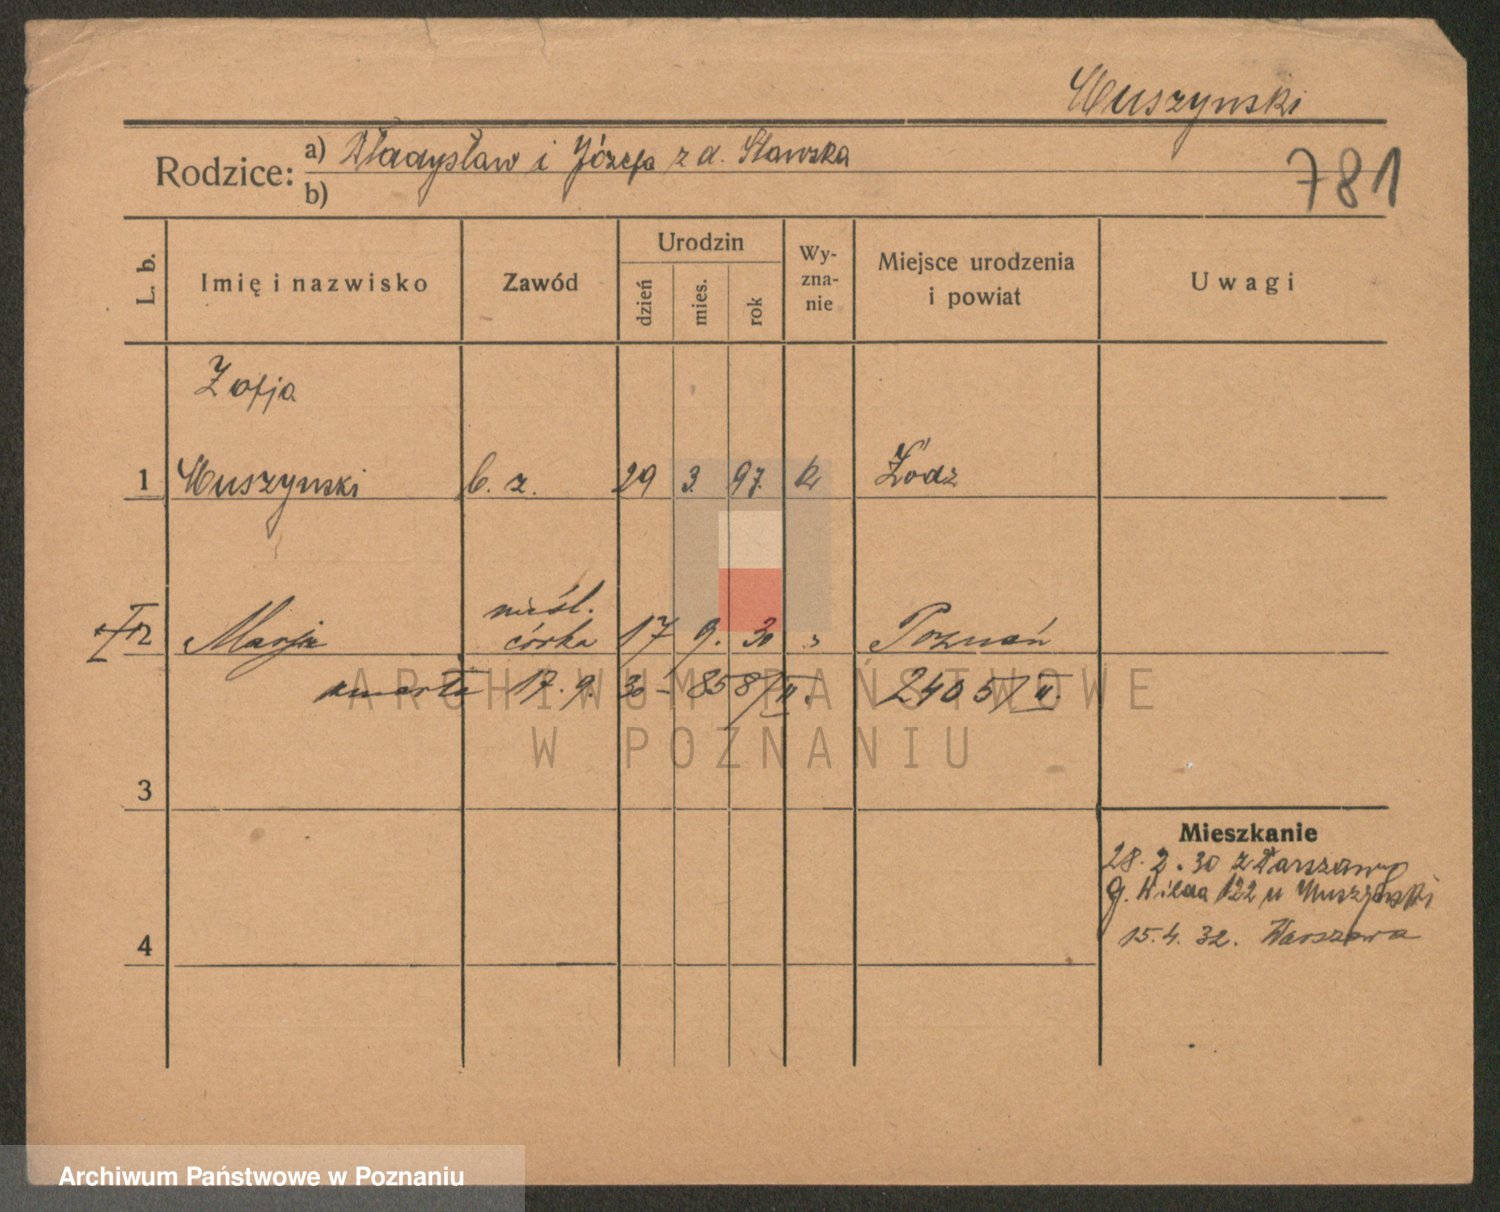 Muszynski
781
Rodzice: a) Władysław i Józefa z d. Stawska
b)
L. b. Imię i nazwisko Zawód Urodzin dzień mies. rok Wy-zna-nie Miejsce urodzenia i powiat Uwagi
Zofja
1 Muszynski b. z. 29 3. 97. k Łódz
nieśl.
2 Marja córka 17 9. 30 " Poznań
umarła 17. 9. 30 - 858/II. 2405/II.
3
Mieszkanie
28. 2. 30 z Warszawy
G. Wilda 122 u Muszynski
4
15. 4. 32. Warszawa
ARCHIWUM PAŃSTWOWE
W POZNANIU
Archiwum Państwowe w Poznaniu